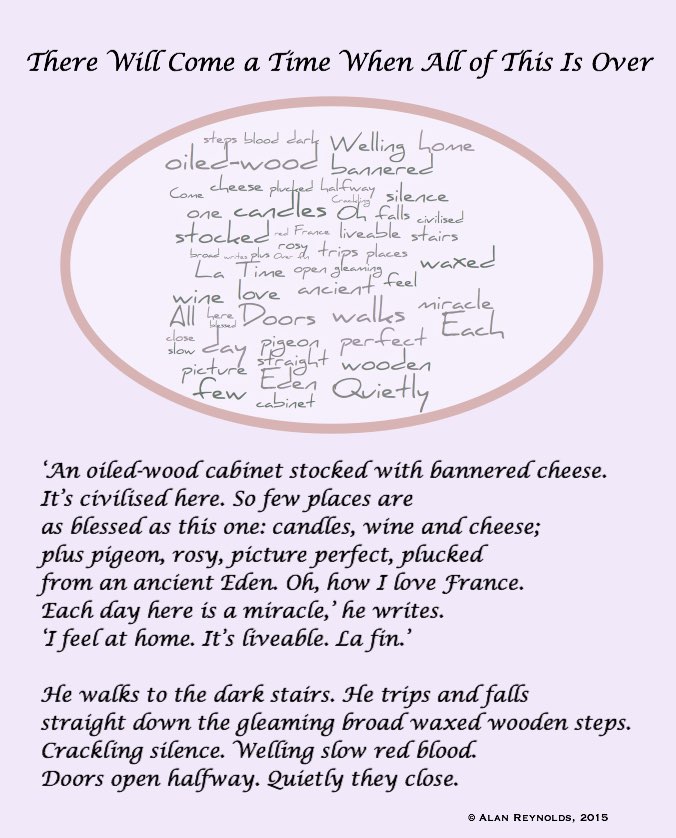 There Will Come a Time When All of This Is Over
steps blood dark Welling home
oiled-wood bannered
Come cheese plucked halfway Crackling silence
one candles Oh falls civilised
stocked red France liveable stairs
broad writes plus rosy Over fin trips places
La Time open gleaming waxed
wine love ancient feel
All here blessed Doors walks miracle
close slow day pigeon perfect Each
picture straight wooden
few Eden Quietly
cabinet
‘An oiled-wood cabinet stocked with bannered cheese.
It’s civilised here. So few places are
as blessed as this one: candles, wine and cheese;
plus pigeon, rosy, picture perfect, plucked
from an ancient Eden. Oh, how I love France.
Each day here is a miracle,’ he writes.
‘I feel at home. It’s liveable. La fin.’
He walks to the dark stairs. He trips and falls
straight down the gleaming broad waxed wooden steps.
Crackling silence. Welling slow red blood.
Doors open halfway. Quietly they close.
© Alan Reynolds, 2015